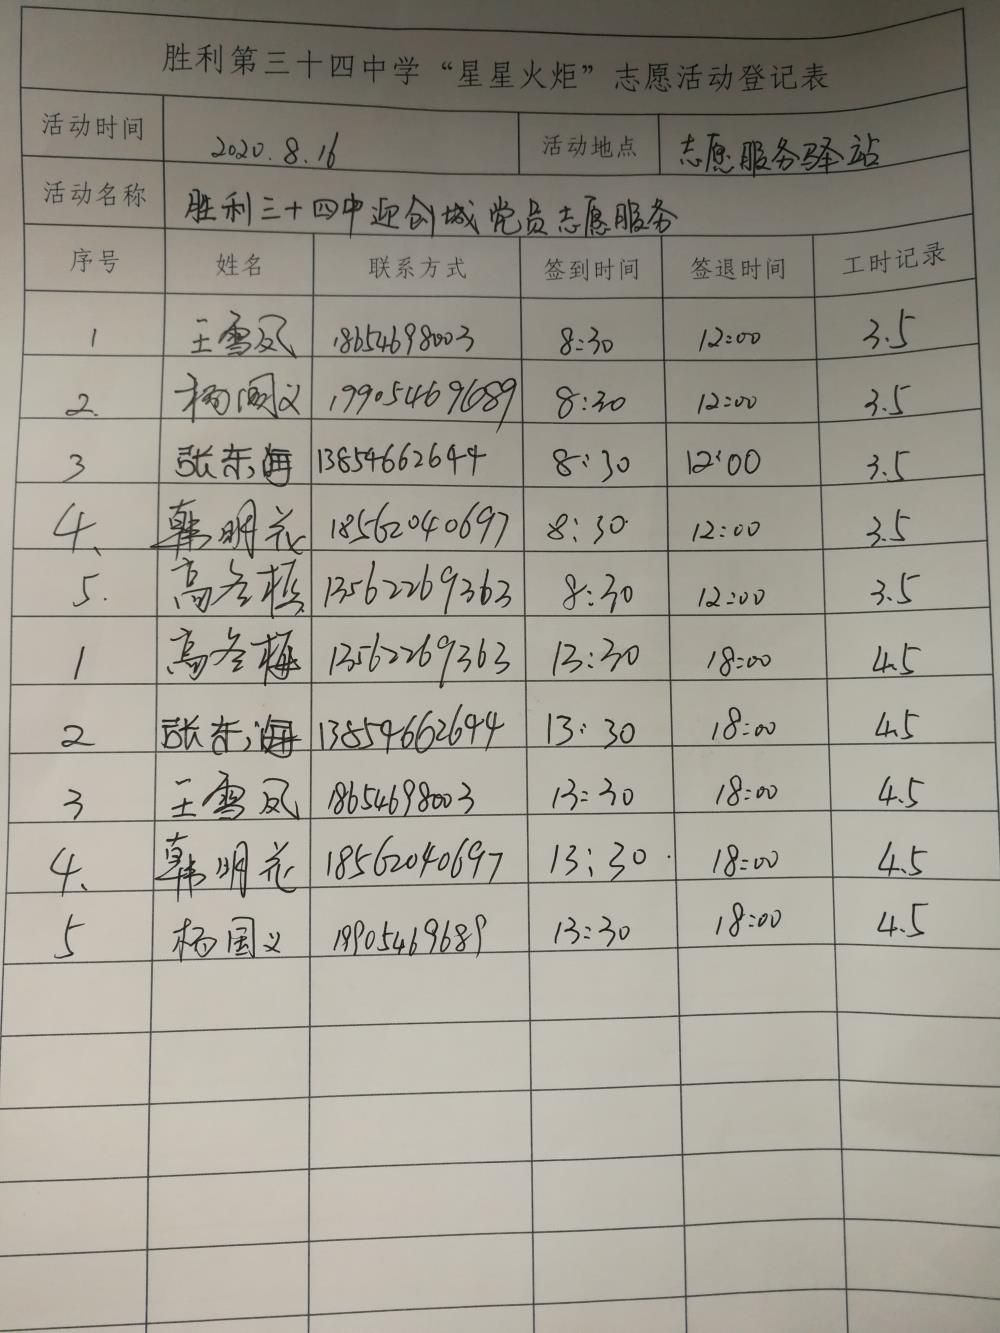 胜利第三十四中学“星星火炬”志愿活动登记表
活动时间 2020.8.16 活动地点 志愿服务驿站
活动名称 胜利三十四中迎创城党员志愿服务
序号 姓名 联系方式 签到时间 签退时间 工时记录
1 王雪凤 18654698003 8:30 12:00 3.5
2. 杨国义 19905469689 8:30 12:00 3.5
3 张东海 13854662644 8:30 12:00 3.5
4、 韩明花 18562040697 8:30 12:00 3.5
5. 高冬梅 13562269363 8:30 12:00 3.5
1 高冬梅 13562269363 13:30 18:00 4.5
2 张东海 13854662644 13:30 18:00 4.5
3 王雪凤 18654698003 13:30 18:00 4.5
4、 韩明花 18562040697 13:30 18:00 4.5
5 杨国义 19905469689 13:30 18:00 4.5